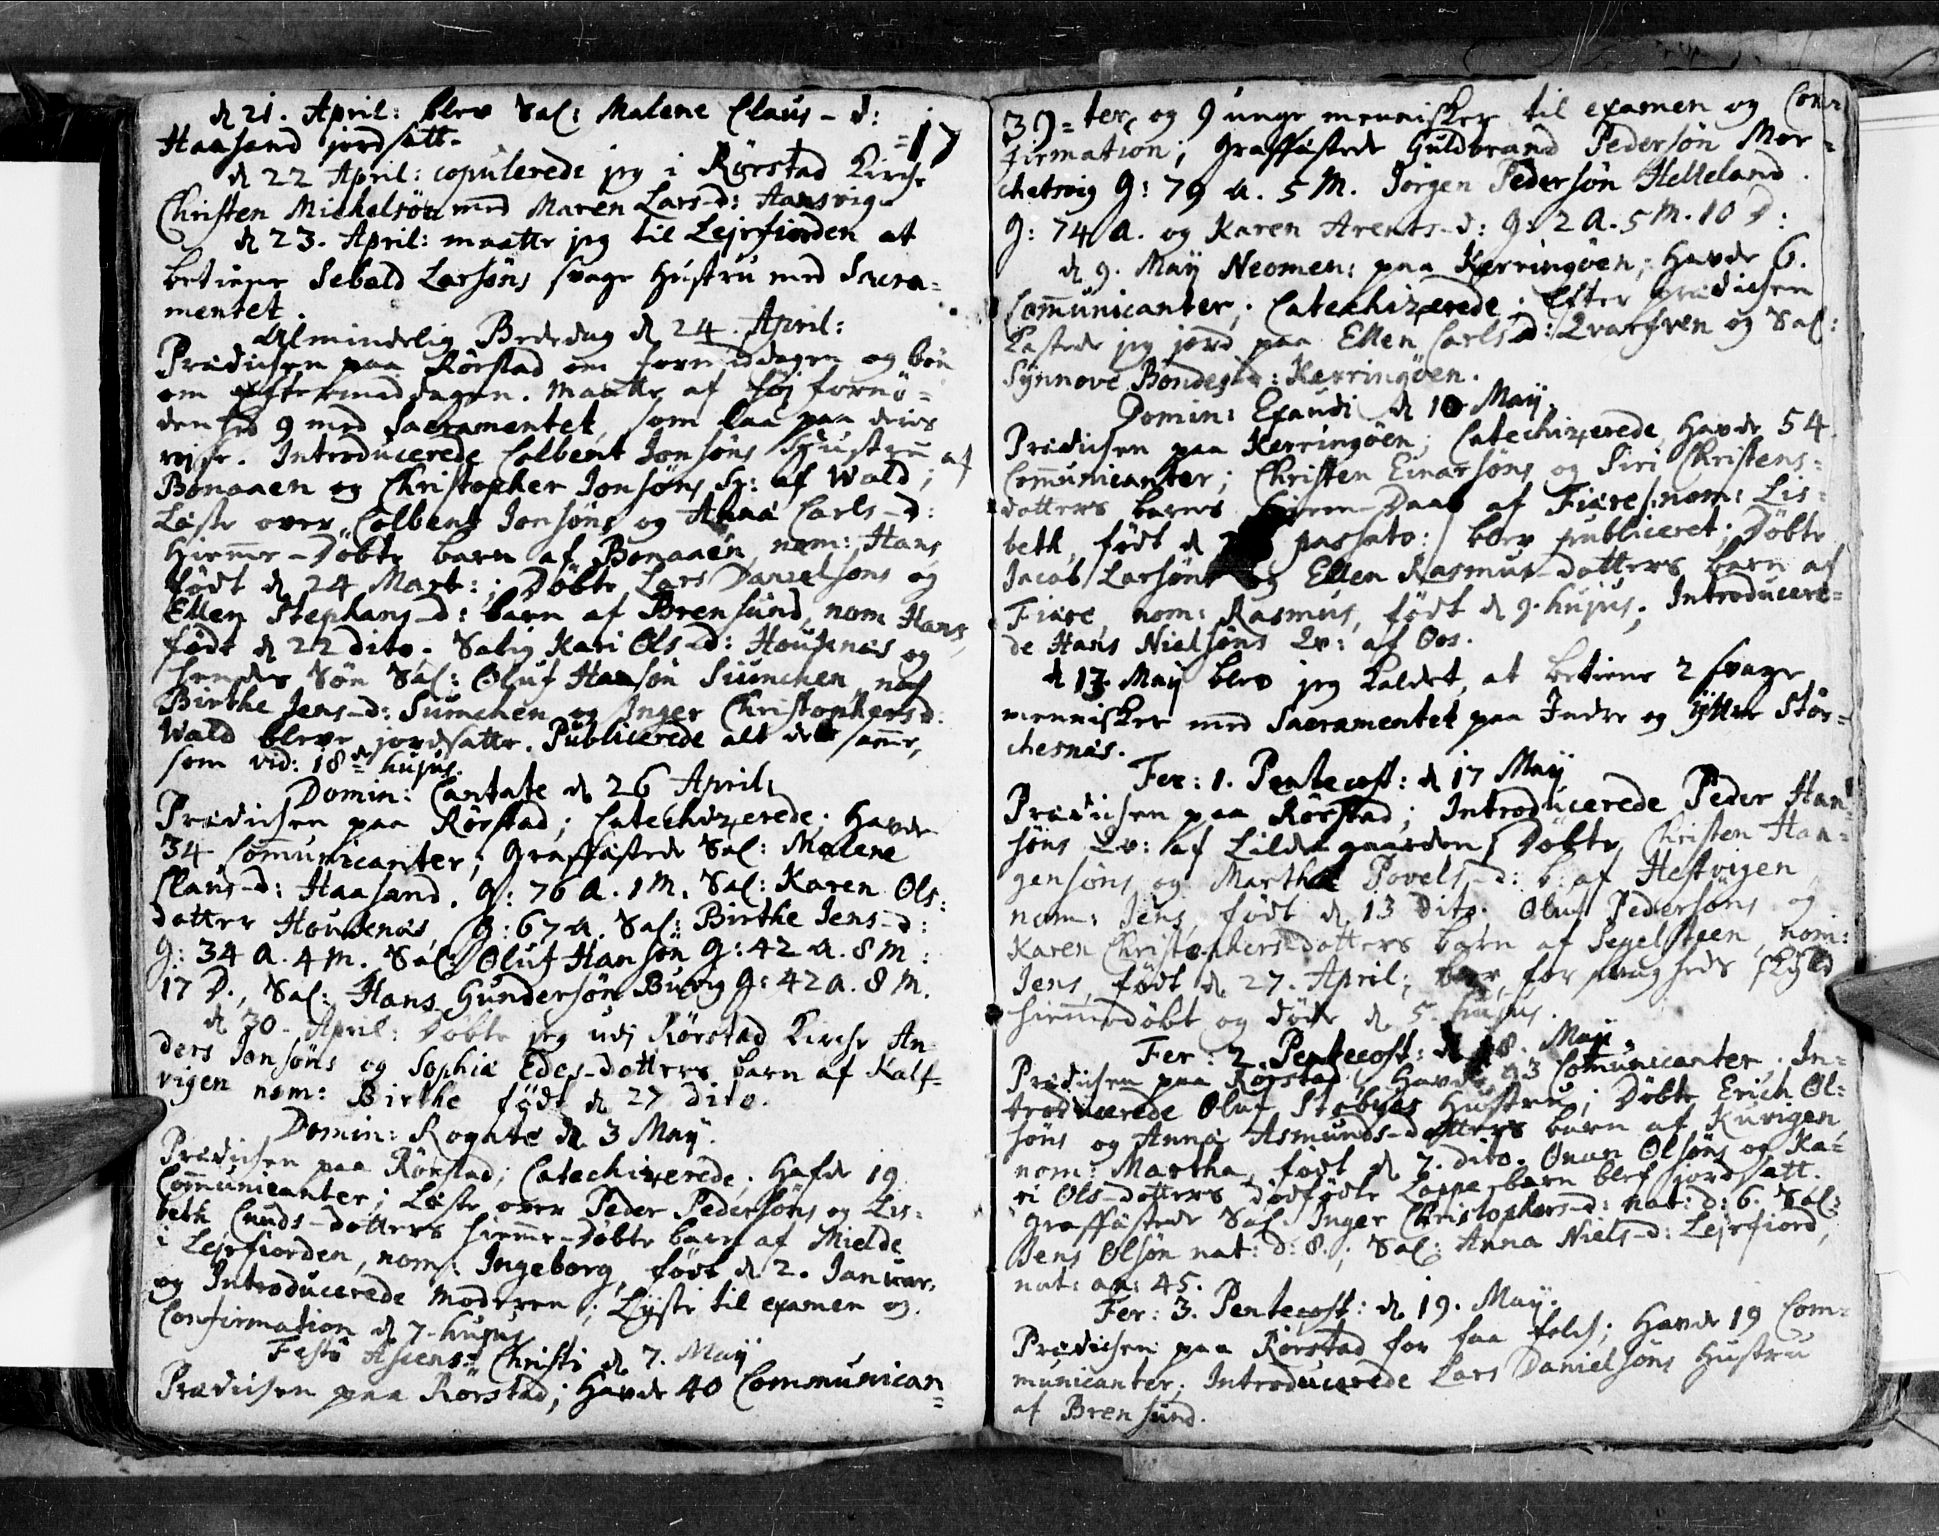 d 21. April: blev Sal: Malene Claus-d:
Haasand jordsatt. =17
d 22 April: copulerede jeg i Rörstad Kirche
Christen Michelsön med Maren Lars-d: Hansvig
d 23. April: maatte jeg til Lejrfiorden at
betiene Sebald Larsöns svage Hustru med Sacra=
mentet.
Almindelig Bededag d 24 April:
Prædichen paa Rörstad om formiddagen og bön
om eftermiddagen. Maatte af höj fornö=
denhed 9 med Sacramentet, som laa paa deris
rejse. Introducerede Colbent Jonsöns Hustru af
Bonaaen og Christopher Jonsöns Hr: af Wald;
Læste over Colbent Jonsöns og Anna Carls-d:
Hiemme-Döbte barn af Bonaaen, nom: Hans
födt d 24 Mart:; Döbte Lars Danielsöns og
Ellen Stephans-d: barn af Brensund, nom Hans,
födt d 22 dito. Salig Kari Ols-d: Houkenæs og
hendes Sön Sal: Oluf Hansön Sümchen, nof
Birthe Jens-d: Sümchen og Inger Christophersd:
Wald bleve jordsatte. Publicerede alt det samme,
som vid: 18de hujus.
Domin: Cantate d 26 April:
Prædichen paa Rörstad; Catechizerede; Havde
34 Communicanter; Graffæstede Sal: Malene
Claus-d: Haasand. G: 76 A. 1 M. Sal: Karen Ols:
datter Houkenæs, G: 67 A. Sal: Birthe Jens-d:
G: 34 A. 4 M. Sal: Oluf Hansön G: 42 A. 8 M:
17 D., Sal: Hans Gundersön Buvig G: 42 A. 8 M.
d 30. April: Döbte jeg udj Rörstad Kirche An
ders Jonsöns og Sophia Edes-datters barn af Kalf=
vigen nom: Birthe födt d 27 dito.
Domin: Rogate d 3 Maÿ.
Prædichen paa Rörstad; Catechizerede; Hafde 19
Communicanter; Læste over Peder Pedersöns og Lis:
beth Cnuds-datters hiemme-Döbte barn af Mielde
i Lejrfiorden, nom: Ingeborg, födt d 2. Januar.
og Introducerede Moderen; Lyste til examen og
Confirmation d 7. hujus
Festo Ascens: Christi d 7. Maÿ
Prædichen paa Rörstad; Havde 40 Communican=
39= ter, og 9 unge mennisker til examen og Con=
firmation; Graffæstede Guldbrand Pedersön Mor=
chetvig G: 79 A. 5 M. Jörgen Pedersön Helleland.
G: 74 A. og Karen Arents-d: G: 2 A. 5 M. 10 D:
d 9. Maÿ Neomen: paa Kerringöen; Havde 6.
Communicanter; Catechizerede; Efter prædichen
Kastede jeg jord paa Ellen Carls-d: Qvarfven og Sal:
Synnove Bondes-d: Kerringöen.
Domin: Exaudi d 10 Maÿ.
Prædichen paa Kerringöen; Catechizerede, Havde 54
Communicanter; Christen Einarsöns og Siri Christens=
datters barns hiemme-Daab af Fiære/: nom: Lis=
beth, födt d passato:/ blev publiceret; Döbte
Jacob Larsöns og Ellen Rasmus-datters barn af
Fiære nom: Rasmus, födt d 9. hujus; Introducere=
de Hans Nielsöns Qv: af Oos.
d 13 Maÿ blev jeg kaldet, at betiene 2 svage
mennisker med Sacramentet paa Indre og Yttre Stör=
chesnæs.
Fer: 1. Pentecost: d 17 Maÿ
Prædichen paa Rörstad; Introducerede Peder Han=
söns Qv: af Lildegaarden; Döbte Christen Haa=
gensöns og Martha Povels-d: b: af Hestvigen
nom: Jens, födt d 13 Dito. Oluf Pedersöns og
Karen Christophersdatters barn af Segelsteen, nom:
Jens, födt d 27. April; blev for svagheds skyld
hiemmedöbt og döde d 5. hujus.
Fer: 2. Pentecost: d 18. Maÿ.
Prædichen paa Rörstad; Havde 3 Comunicanter; In=
troducerede Oluf Stobyes Hustru; Döbte Erich Ol:
söns og Anna Asmunds-datters barn af Kuvigen
nom: Martha, födt d 7. dito. Onun Olsöns og Ka=
ri Ols-datters dödfödte Lappe-barn blef jordsatt.
Graffæstede Sal. Inger Christophers-d: nat: d: 6. Sal:
Jens Olsön nat: d: 8.; Sal: Anna Niels-d: Lejrfiord,
nat: an: 45.
Fer: 3. Pentecost: d 19. Maÿ.
Prædichen paa Rörstad for faa folch; Havde 19 Com=
municanter; Introducerede Lars Danielsöns Hustru
af Brensund.